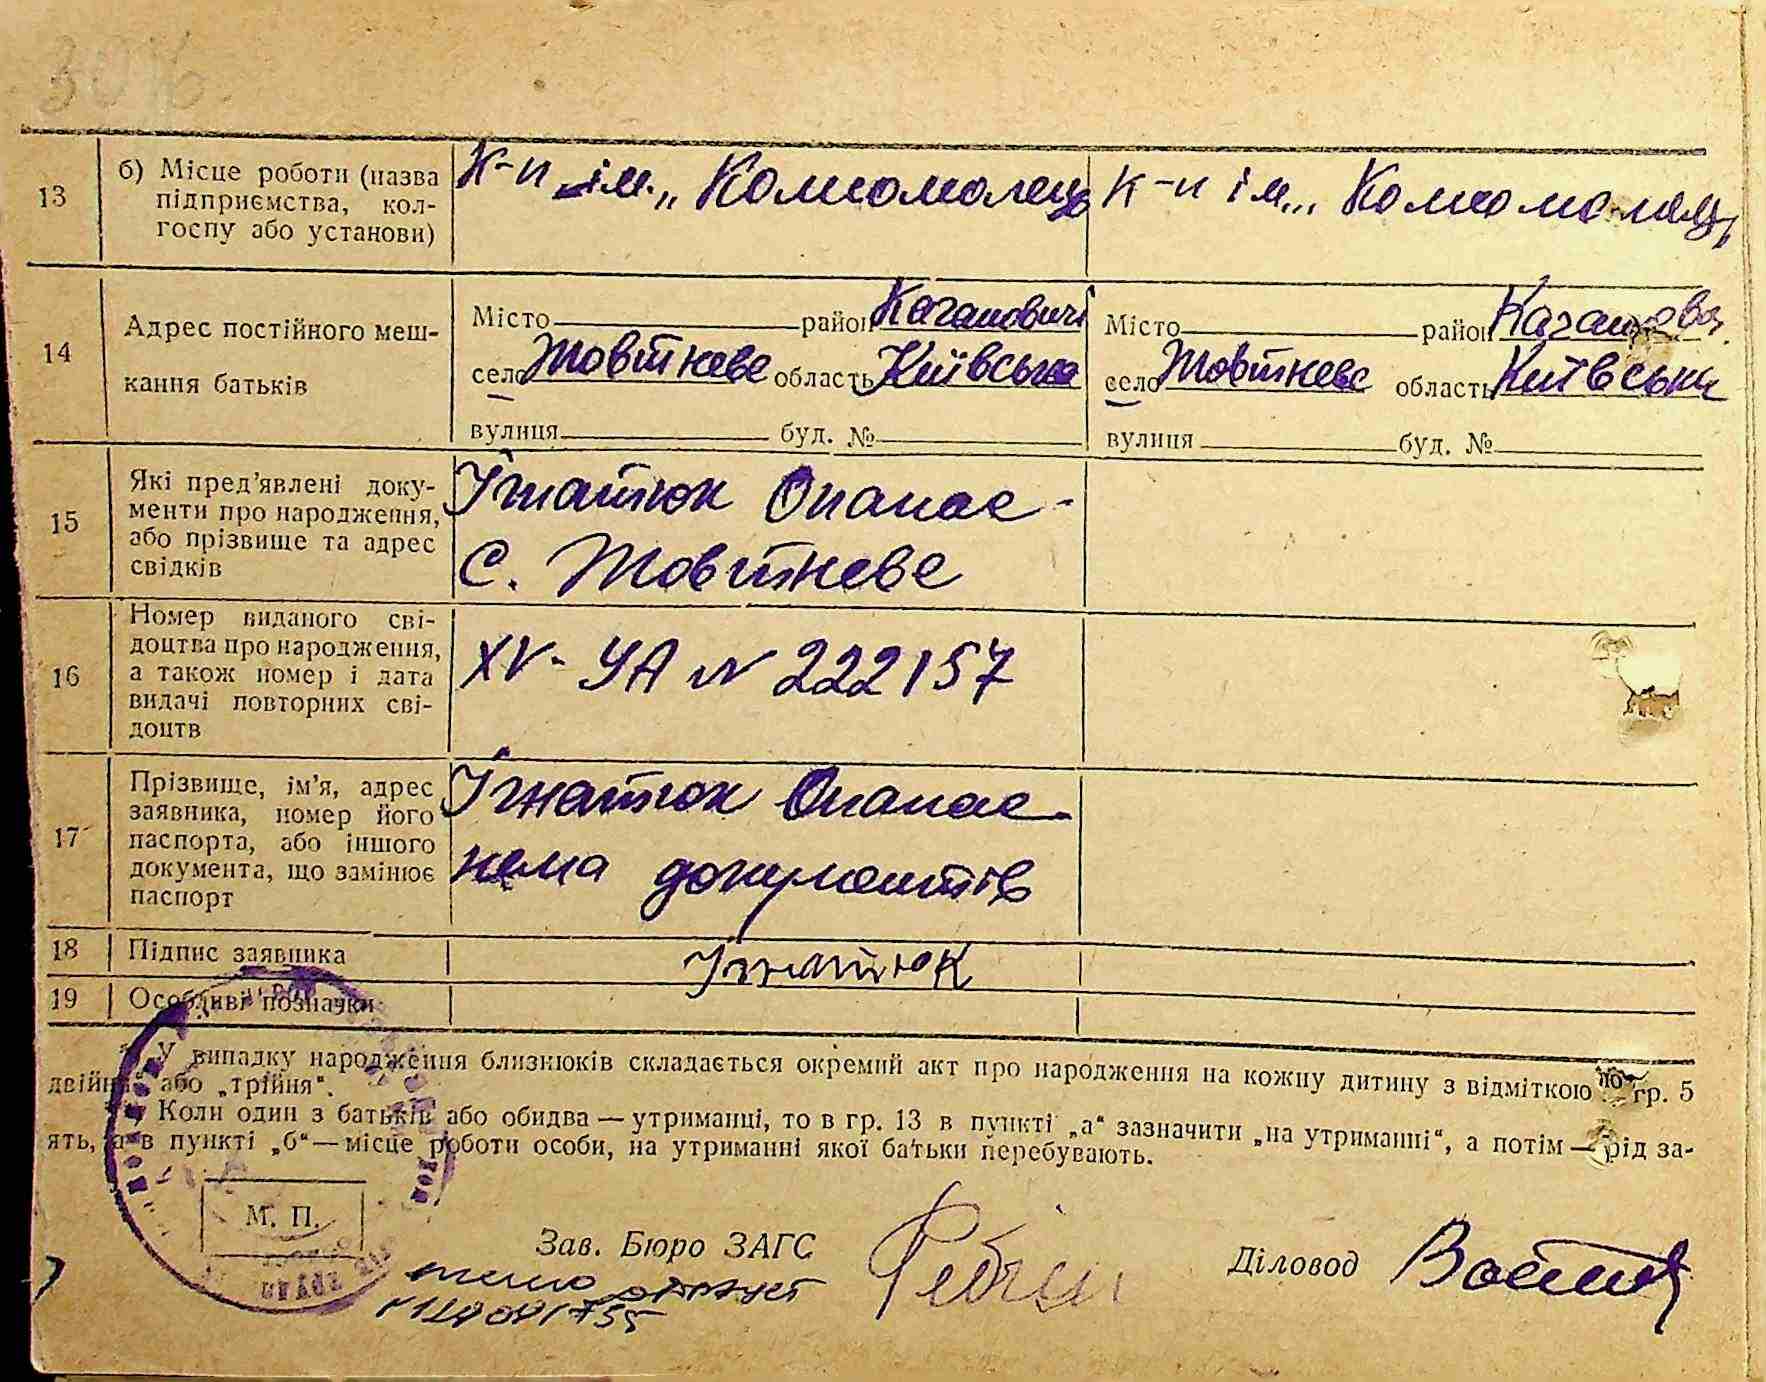 13
б) Місце роботи (назва
підприємства, кол-
госпу або установи)
К-п ім. „Комсомолець
К-п ім. „Комсомолець
14
Адрес постійного меш-
кання батьків
Місто район Кагановичі
село Жовтневе область Київська
вулиця буд. №
Місто район
село Жовтневе область Київська
вулиця буд. №
15
Які пред'явлені доку-
менти про народження,
або прізвище та адрес
свідків
Ігнатюк Опанас -
с. Жовтневе
16
Номер виданого сві-
доцтва про народження,
а також номер і дата
видачі повторних сві-
доцтв
XV- УА N 222157
17
Прізвище, ім'я, адрес
заявника, номер його
паспорта, або іншого
документа, що замінює
паспорт
Ігнатюк Опанас -
нема документів
18
Підпис заявника
Ігнатюк
19
Особливі позначки
У випадку народження близнюків складається окремий акт про народження на кожну дитину з відміткою по гр. 5
двійня" або „трійня".
Коли один з батьків або обидва — утриманці, то в гр. 13 в пункті „а" зазначити „на утриманні", а потім — рід за-
ять, а в пункті „б" — місце роботи особи, на утриманні якої батьки перебувають.
М. П.
Зав. Бюро ЗАГС
Діловод